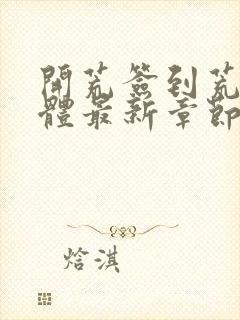 開荒簽到荒
體最新章節
焓淇